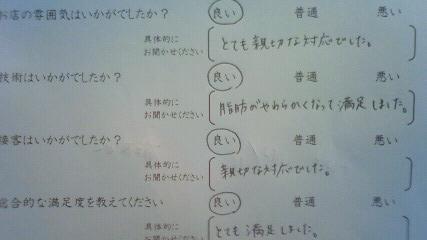 お店の雰囲気はいかがでしたか？ 良い 普通 悪い
具体的に
お聞かせください
とても親切な対応でした。
技術はいかがでしたか？ 良い 普通 悪い
具体的に
お聞かせください
脂肪がやわらかくなって満足しました。
接客はいかがでしたか？ 良い 普通 悪い
具体的に
お聞かせください
親切な対応でした。
総合的な満足度を教えてください 良い 普通 悪い
具体的に
お聞かせください
とても満足しました。